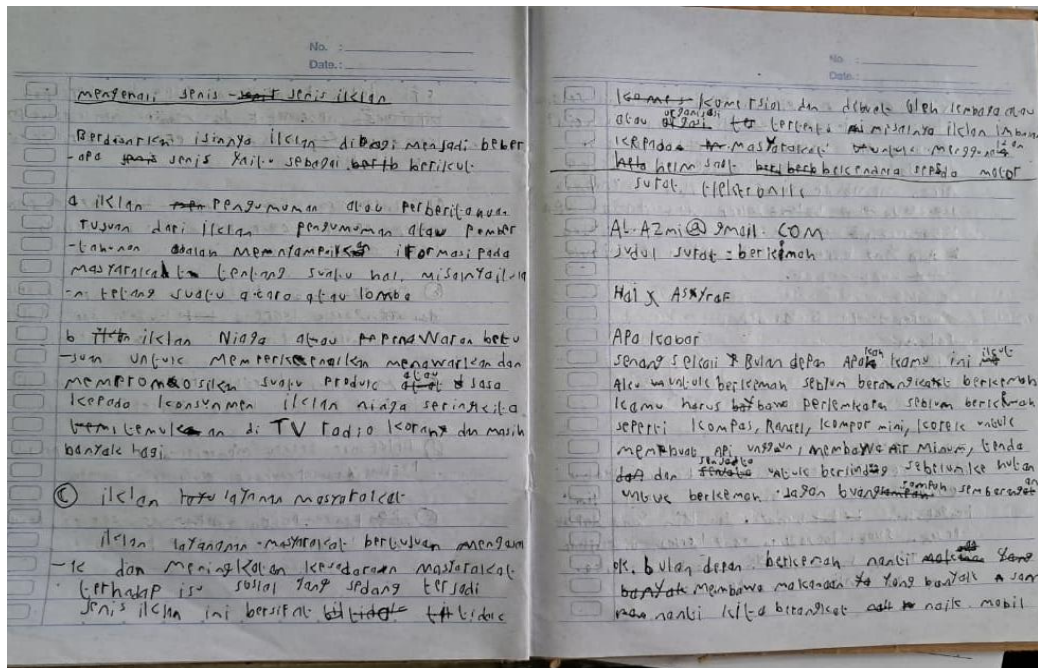 No. :
Date. :
mengenali Jenis - Jenis iklan
Berdasarkan isinnya iklan dibagi menjadi beber
-apa jenis Yaitu sebagai berikut
a iklan Pengumuman atau Perberitahuan
Tujuan dari iklan pengumuman atau Pember
-tahunan adalah Memnyampaikan iformasi Pada
masyarakat tentang suatu hal, misalnya
-n tetang suatu atau lomba
b iklan Niaga atau penawaran betu
-juan untuk Memperkenalkan menawarkan dan
mempromosikn suatu produk atau Jasa
kepada konsunmen iklan niaga sering kita
temukan di TV radio korang dan masih
banyak hagi
C iklan layanan masyarakat
iklan layanann masyarakat bertujuan mengaja
-k dan meningkatan kesadaraan masyarakat
terhadap isu sosial Yang sedang terjadi
Jenis iklan ini bersifat tidak
No :
Date. :
komersial dan dibuat oleh lembaga atau
atau organisasi tertentu misalnya iklan Imbaua
kepada masyarakat untuk menggunakan
helm saat bekendara sepeda motor
surat elektronik
AL.AZmi@gmail.COM
Judul surat = berkemah
Hai Asyraf
Apa kabar
senang sekali Bulan depan Apakah kamu ini ikut
Aku untuk berkemah seblum berangkat berkemah
kamu harus bawa perlemkapan seblum berkemah
seperti kompas, Ransel, kompor mini, korek untuk
membuat api unggun, membawa air minum, tenda
dan senjata untuk berlindung sebelum ke hutan
untuk berkemah jagan buang sampah sembarangan
ok. bulan depan berkemah nanti
membawa makanaan yang banyak
nanti kita berangkat naik mobil